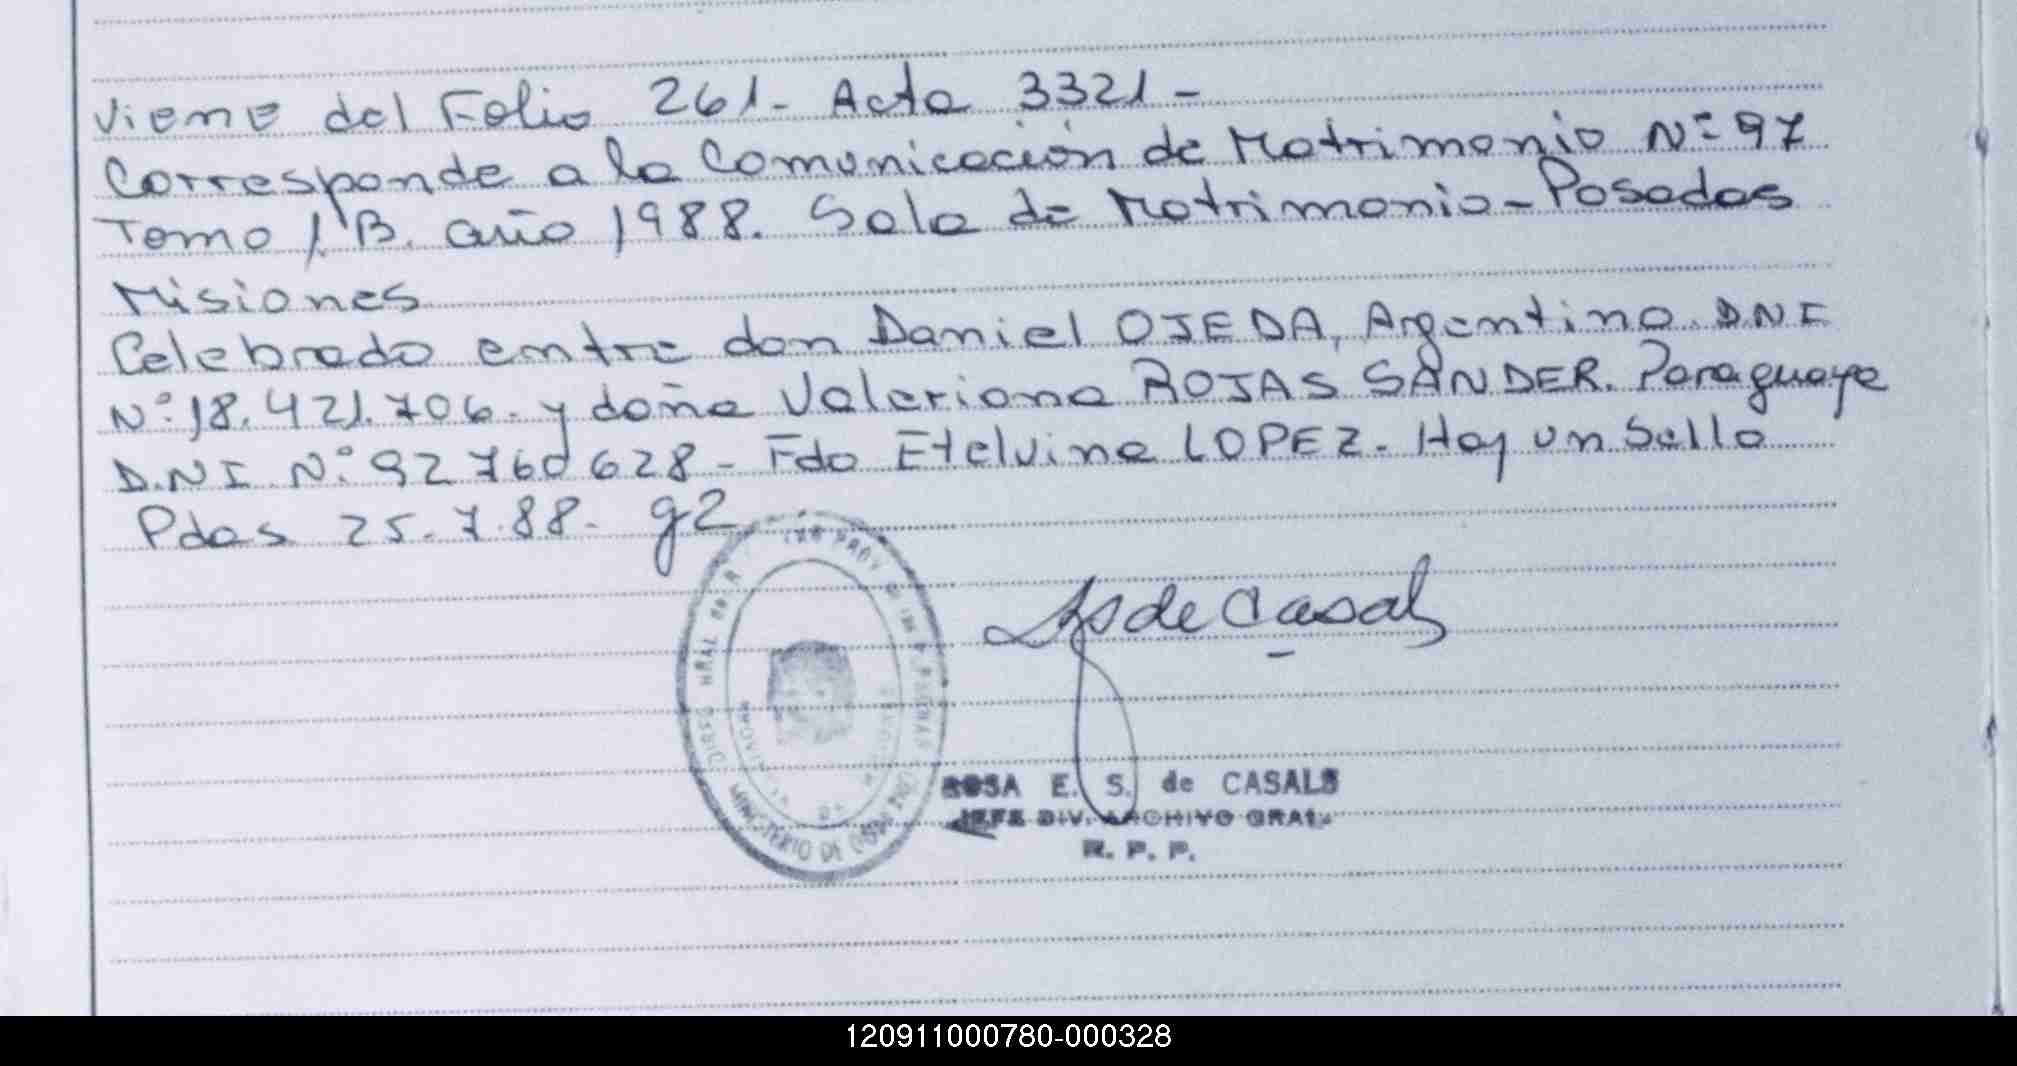 Viene del Folio 261- Acta 3321-
Corresponde a la Comunicación de Matrimonio Nº 97
Tomo 1 "B. año 1988. Sala de Matrimonio - Posadas
Misiones
Celebrado entre don Daniel OJEDA, Argentino. DNI
Nº 18.421.706. y doña Valeriana ROJAS SANDER. Paraguaya
D.NI Nº 92760628 - Fdo Etelvina LOPEZ. Hay un Sello
Pdas 25.7.88. g2
MINISTERIO DE
de Casals
ROSA E. S. de CASALS
JEFE DIV. ARCHIVO GRAL.
R. P. P.
120911000780-000328